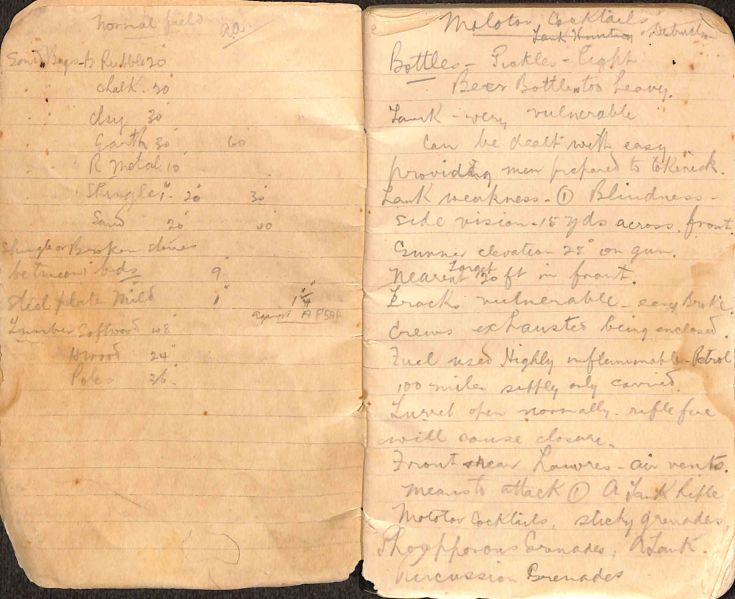 Normal field
Sand Bags - B Rubble 20
" chalk - 20
" clay 30
" Earth 30" 60
" R Metal 10
Shingle 1" 20" 30
Sand 20" 40
Shingle or Broken stones
between beds 9"
Steel plate Mild 1" 1¼"
against
Lumber Softwood 48"
Hwood 24"
Poles 36"
Molotov Cocktails
Tank Hunting &
Bottles - Pickles - Light
Beer Bottles too heavy.
Tank - very vulnerable
can be dealt with easy
providing men prepared to take risk.
Tank weakness - ① Blindness -
side vision - 15 yds across front
Gunner elevation 25° on gun.
Nearest Target 20 ft in front.
Tracks vulnerable - easy Broke.
Crews exhausted being enclosed.
Fuel used Highly inflammable - Petrol
100 miles supply only carried.
Turret open normally - rifle fire
will cause closure.
Front & rear Louvres - air vents.
means to attack ① A Tank Rifle
Molotov Cocktails, sticky grenades,
Phospporous Grenades, A Tank.
Percussion Grenades